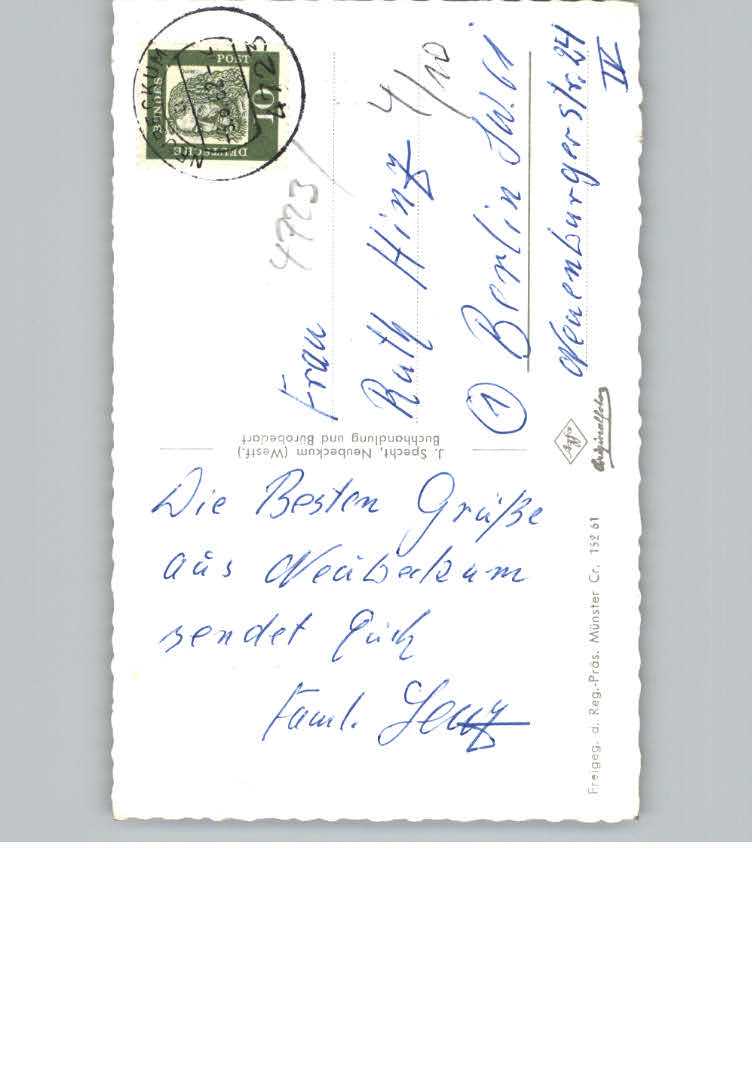 DEUTSCHE
BUNDESPOST
10
4723
4723
4/10
Frau
Ruth Hinz
(1) Berlin SW. 61
Neuenburgerstr. 24
IV
J. Specht, Neubeckum (Westf.)
Buchhandlung und Bürobedarf
Agfa
Originalfoto
Die Besten Grüße
aus Neubeckum
sendet Euch
Faml. Lenz
Freigeg. d. Reg.-Präs. Münster Cr. 152 61